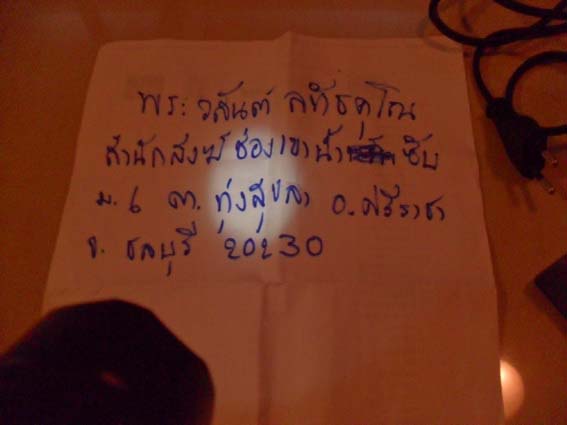 พระ วสันต์ ลทฺธคุโณ
สำนักสงฆ์ช่องเขาน้ำ ซับ
ม. 6 ต. ทุ่งสุขลา อ. ศรีราชา
จ. ชลบุรี 20230